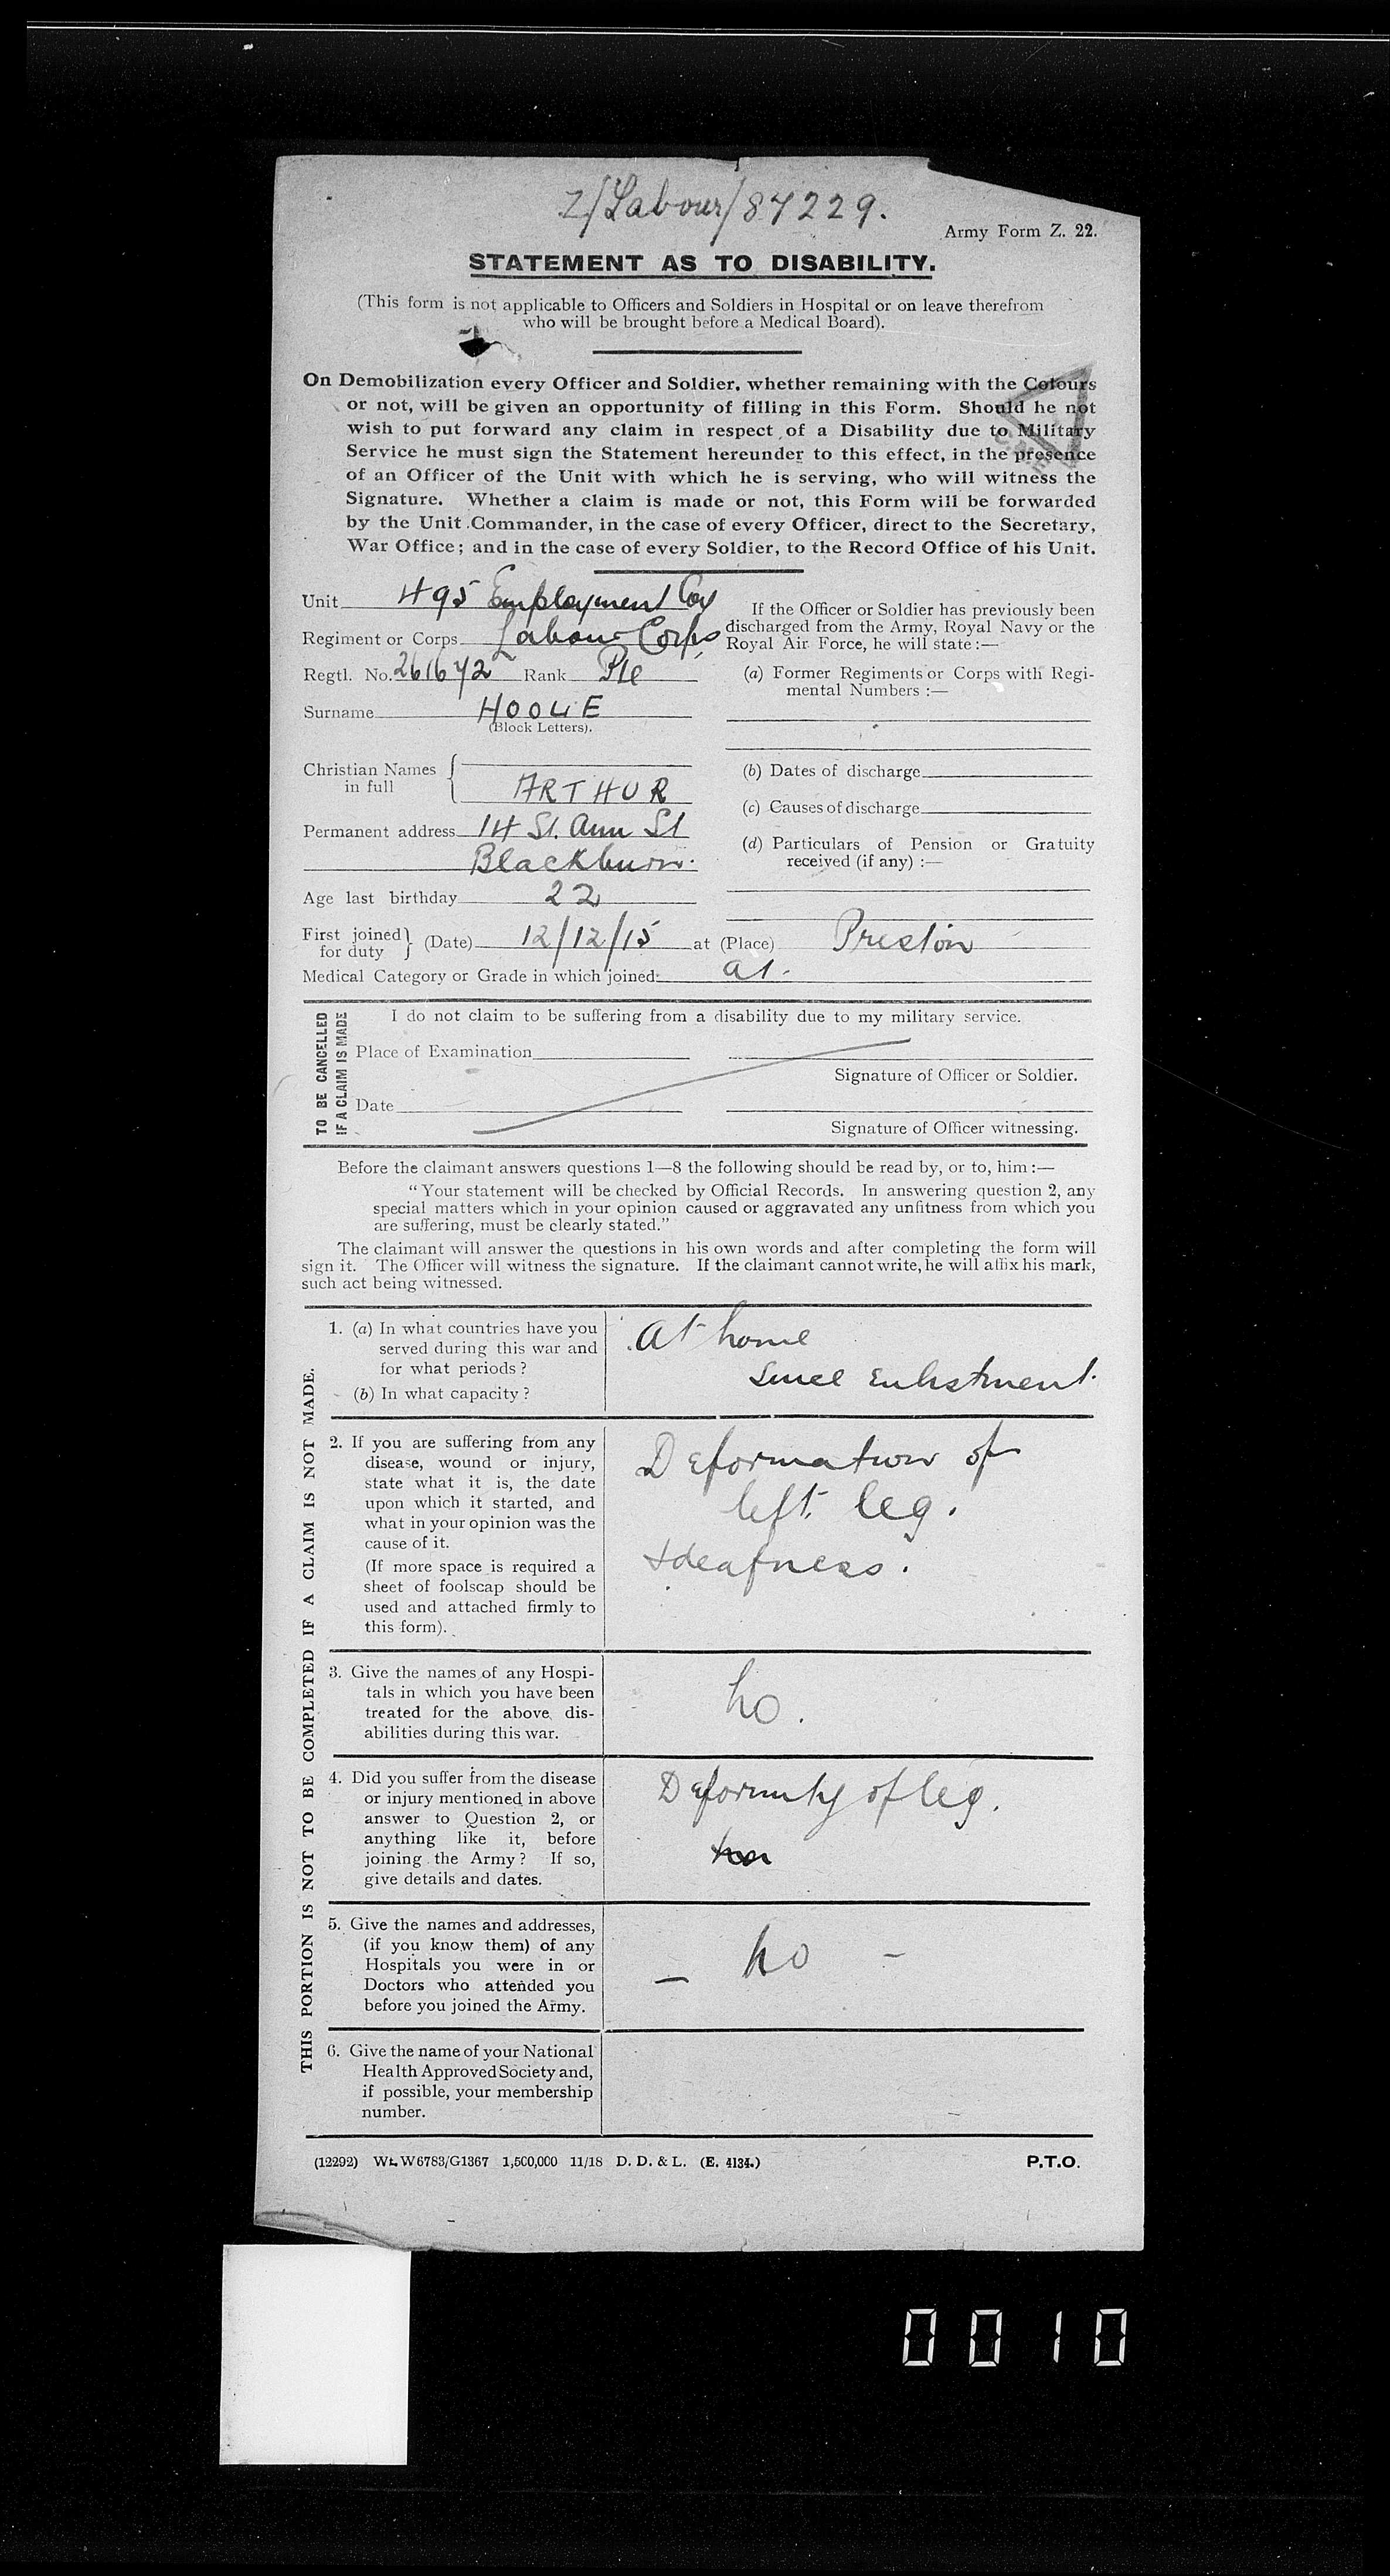 Z/Labour/87229.
Army Form Z. 22.
STATEMENT AS TO DISABILITY.
(This form is not applicable to Officers and Soldiers in Hospital or on leave therefrom
who will be brought before a Medical Board).
On Demobilization every Officer and Soldier, whether remaining with the Colours
or not, will be given an opportunity of filling in this Form. Should he not
wish to put forward any claim in respect of a Disability due to Military
Service he must sign the Statement hereunder to this effect, in the presence
of an Officer of the Unit with which he is serving, who will witness the
Signature. Whether a claim is made or not, this Form will be forwarded
by the Unit Commander, in the case of every Officer, direct to the Secretary,
War Office; and in the case of every Soldier, to the Record Office of his Unit.
Unit 495 Employment Coy
Regiment or Corps Labour Corps
Regtl. No. 261672 Rank Pte
Surname
(Block Letters).
Christian Names
in full
ARTHUR
Permanent address 14 St. Ann St
Blackburn.
Age last birthday 22
If the Officer or Soldier has previously been
discharged from the Army, Royal Navy or the
Royal Air Force, he will state:—
(a) Former Regiments or Corps with Regi-
mental Numbers :—
(b) Dates of discharge
(c) Causes of discharge
(d) Particulars of Pension or Gratuity
received (if any) :—
First joined
for duty
(Date) 12/12/15 at (Place) Preston
Medical Category or Grade in which joined: A1.
TO BE CANCELLED
IF A CLAIM IS MADE
I do not claim to be suffering from a disability due to my military service.
Place of Examination
Signature of Officer or Soldier.
Date
Signature of Officer witnessing.
Before the claimant answers questions 1—8 the following should be read by, or to, him :—
"Your statement will be checked by Official Records. In answering question 2, any
special matters which in your opinion caused or aggravated any unfitness from which you
are suffering, must be clearly stated."
The claimant will answer the questions in his own words and after completing the form will
sign it. The Officer will witness the signature. If the claimant cannot write, he will affix his mark,
such act being witnessed.
THIS PORTION IS NOT TO BE COMPLETED IF A CLAIM IS NOT MADE.
1. (a) In what countries have you
served during this war and
for what periods?
(b) In what capacity?
At home
Since Enlistment.
2. If you are suffering from any
disease, wound or injury,
state what it is, the date
upon which it started, and
what in your opinion was the
cause of it.
(If more space is required a
sheet of foolscap should be
used and attached firmly to
this form).
Deformation of
left leg.
+ deafness.
3. Give the names of any Hospi-
tals in which you have been
treated for the above dis-
abilities during this war.
No.
4. Did you suffer from the disease
or injury mentioned in above
answer to Question 2, or
anything like it, before
joining the Army? If so,
give details and dates.
Deformity of leg.
5. Give the names and addresses,
(if you know them) of any
Hospitals you were in or
Doctors who attended you
before you joined the Army.
— No —
6. Give the name of your National
Health Approved Society and,
if possible, your membership
number.
(12292) Wt. W6783/G1367 1,500,000 11/18 D. D. & L. (E. 4134.)
P.T.O.
0010